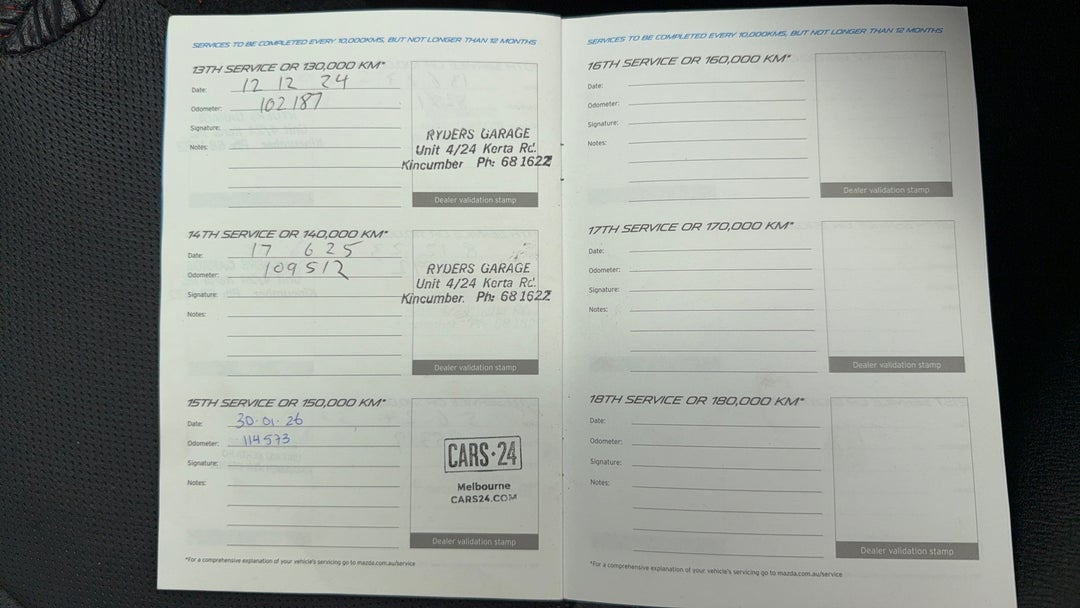 SERVICES TO BE COMPLETED EVERY 10,000KMS, BUT NOT LONGER THAN 12 MONTHS
13TH SERVICE OR 130,000 KM*
Date: 12 12 24
Odometer: 102187
Signature:
Notes:
RYDERS GARAGE
Unit 4/24 Kerta Rd.
Kincumber Ph: 68 1622
Dealer validation stamp
14TH SERVICE OR 140,000 KM*
Date: 17 6 25
Odometer: 109512
Signature:
Notes:
RYDERS GARAGE
Unit 4/24 Kerta Rd.
Kincumber. Ph: 68 1622
Dealer validation stamp
15TH SERVICE OR 150,000 KM*
Date: 30·01·26
Odometer: 114573
Signature:
Notes:
CARS·24
Melbourne
CARS24.COM
Dealer validation stamp
*For a comprehensive explanation of your vehicle's servicing go to mazda.com.au/service
SERVICES TO BE COMPLETED EVERY 10,000KMS, BUT NOT LONGER THAN 12 MONTHS
16TH SERVICE OR 160,000 KM*
Date:
Odometer:
Signature:
Notes:
Dealer validation stamp
17TH SERVICE OR 170,000 KM*
Date:
Odometer:
Signature:
Notes:
Dealer validation stamp
18TH SERVICE OR 180,000 KM*
Date:
Odometer:
Signature:
Notes:
Dealer validation stamp
*For a comprehensive explanation of your vehicle's servicing go to mazda.com.au/service